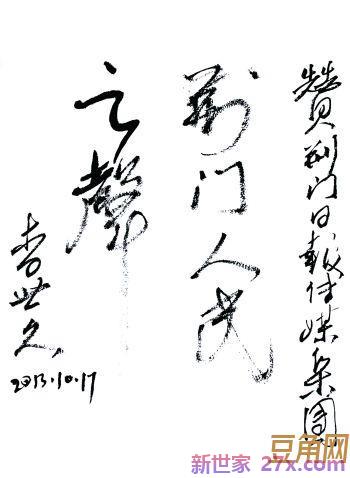 赞荆门日報传媒集团
荆门人民
之聲
李世久
2013.10.17
豆角网
新世家 27x.com